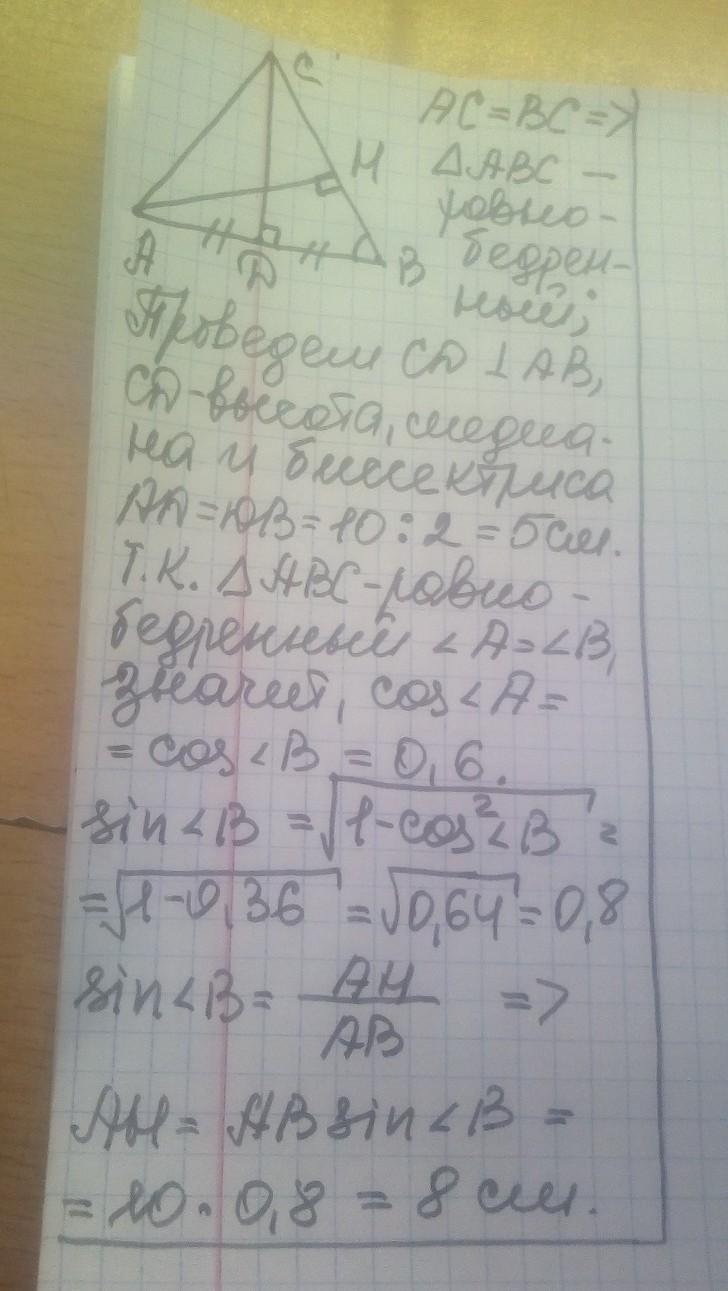 C
H
A
D
B
AC=BC=>
△ABC —
равно-
бедрен-
ный;
Проведем CD⊥AB,
CD-высота, медиа-
на и биссектриса
AD=DB=10:2=5см.
Т.К. △ABC-равно-
бедренный ∠A=∠B,
значит, cos∠A=
= cos∠B = 0,6.
sin∠B = √(1-cos²∠B) =
= √(1-0,36) = √(0,64) = 0,8
sin∠B = AH/AB =>
AH = AB sin∠B =
= 10 · 0,8 = 8 см.